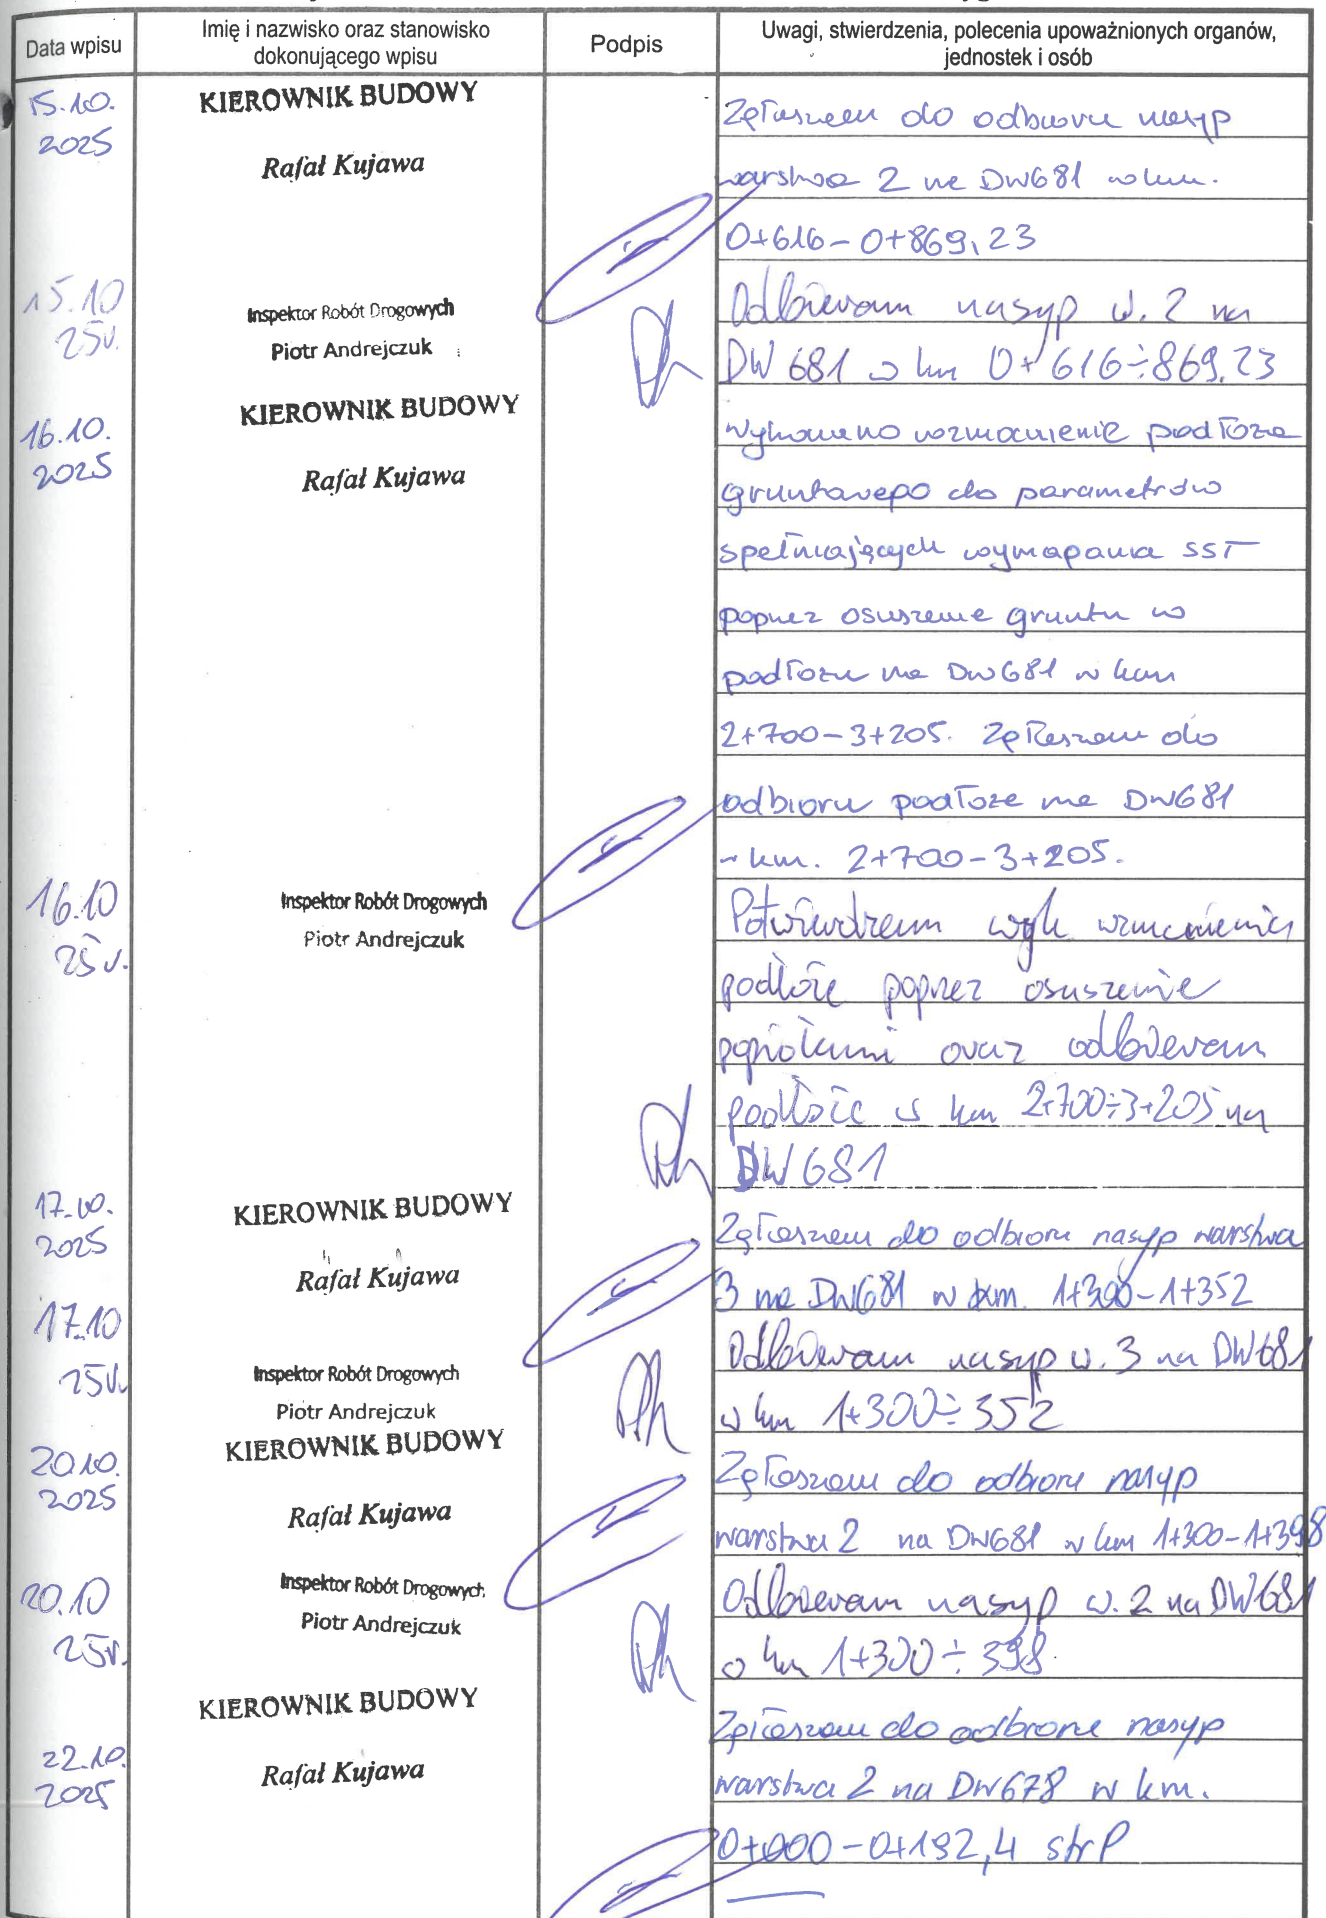 Data wpisu
Imię i nazwisko oraz stanowisko
dokonującego wpisu
Podpis
Uwagi, stwierdzenia, polecenia upoważnionych organów,
jednostek i osób
15.10.
2025
KIEROWNIK BUDOWY
Rafał Kujawa
Zgłaszam do odbioru nasyp
warstwa 2 na DW681 w km.
0+616-0+869,23
15.10
25r.
Inspektor Robót Drogowych
Piotr Andrejczuk
Odbieram nasyp w. 2 na
DW 681 w km 0+616÷869.23
16.10.
2025
KIEROWNIK BUDOWY
Rafał Kujawa
Wykonano wzmocnienie podłoża
gruntowego do parametrów
spełniających wymagania SST
poprzez osuszenie gruntu w
podłożu na DW681 w km
2+700-3+205. Zgłaszam do
odbioru podłoże na DW681
w km. 2+700-3+205.
16.10
25r.
Inspektor Robót Drogowych
Piotr Andrejczuk
Potwierdzam wyk wzmocnienia
podłoże poprzez osuszenie
popiołami oraz odbieram
podłoże w km 2+700÷3+205 na
DW 681
17.10.
2025
KIEROWNIK BUDOWY
Rafał Kujawa
Zgłaszam do odbioru nasyp warstwa
3 na DW681 w km. 1+300-1+352
17.10
25r.
Inspektor Robót Drogowych
Piotr Andrejczuk
Odbieram nasyp w. 3 na DW681
w km 1+300÷352
20.10.
2025
KIEROWNIK BUDOWY
Rafał Kujawa
Zgłaszam do odbioru nasyp
warstwa 2 na DW681 w km 1+300-1+398
20.10
25r.
Inspektor Robót Drogowych
Piotr Andrejczuk
Odbieram nasyp w. 2 na DW681
w km 1+300÷398
22.10.
2025
KIEROWNIK BUDOWY
Rafał Kujawa
Zgłaszam do odbioru nasyp
warstwa 2 na DW678 w km.
0+000-0+192,4 strP